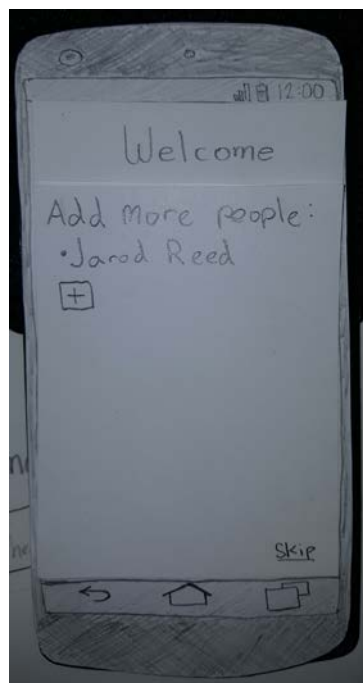 12:00
Welcome
Add more people:
•Jarod Reed
+
Skip